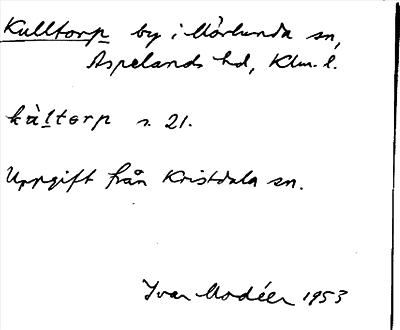 Kulltorp by i Mörlunda sn,
Aspelands hd, Klm. l.
kùltorp s. 21.
Uppgift från Kristdala sn.
Ivar Modéer 1953